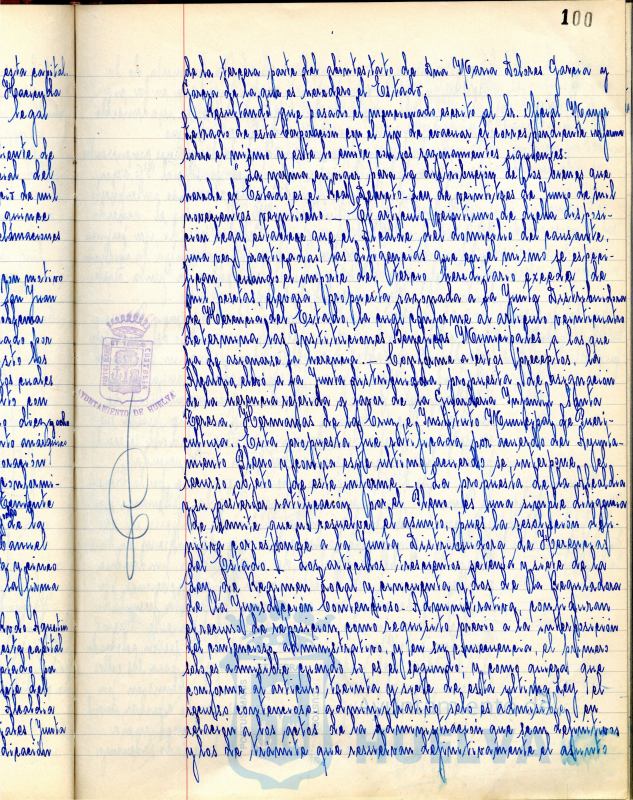 100
esta capital.
Hacienda
legal
de la tercera parte del abintestato de Dña Maria Dolores Garcia y
Garcia de la que es heredero el Estado.
Resultando que pasado el mencionado escrito al Sr. Oficial Mayor
Letrado de esta Corporación con el fin de evacuar el correspondiente informe
sobre el mismo y este lo emite en los razonamientos siguientes:
La norma en vigor para la distribución de los bienes que
hereda el Estado es el Real Decreto-Ley de veintitres de Junio de mil
novecientos veintiocho.- El artículo veintiuno de dicha disposi-
ción legal establece que el Alcalde del domicilio del causante,
una vez practicadas las diligencias que en el mismo se especi-
fican, cuando el importe del tercio hereditario exceda de
mil pesetas, elevará propuesta razonada a la Junta Distribuidora
de Herencias del Estado, la cual conforme al artículo veinticuatro
determina las Instituciones Beneficas Municipales a las que
ha de asignarse la herencia.- Conforme a estos preceptos, la
Alcaldia elevó a la Junta distribuidora propuesta de asignación
de la herencia referida a favor de la Guarderia Infantil Santa
Teresa, Hermanas de la Cruz e Instituto Municipal de Pueri-
cultura. Esta propuesta fué ratificada por acuerdo del Ayunta-
miento Pleno y contra este ultimo acuerdo se interpone el
recurso objeto de este informe.- La propuesta de la Alcaldia
y su posterior ratificación por el Pleno, es una simple diligencia
de tramite que no resuelve el asunto, pues la resolución defi-
nitiva corresponde a la Junta Distribuidora de Herencias
del Estado.- Los articulos trescientos setenta y siete de la
Ley de Regimen Local y cincuenta y dos de la Reguladora
de la Jurisdicción Contencioso-Administrativa, configuran
el recurso de reposición, como requisito previo a la interposición
del contencioso administrativo y en su consecuencia, el primero
solo es admisible cuando lo es el segundo; y como quiera que
conforme al articulo treinta y siete de esta ultima Ley, el
recurso contencioso administrativo solo es admisible en
relacion a los actos de la Administracion que sean definitivos
y los de tramite que resuelvan definitivamente el asunto
AYUNTAMIENTO DE HUELVA
HUELVA